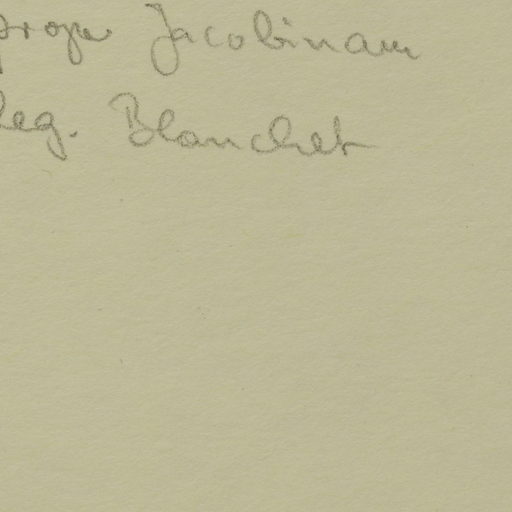 prope Jacobinam
leg. Blanchet